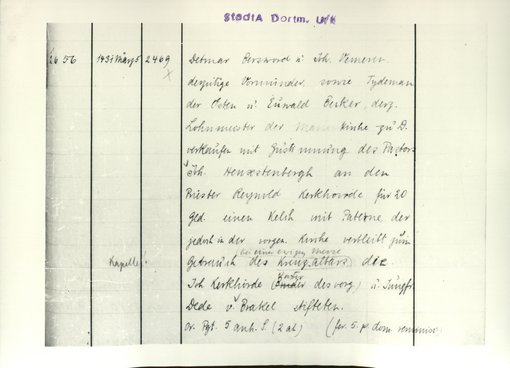 StadtA Dortm. U/K
2656 1431 März 5 2469 Detmar Berswordt u. Joh. Vemern
x
derzeitige Vormünder, sowie Tydeman
der Osten u. Euwald Becker, derz.
Lohnmeister der Marienkirche zu D.
verkaufen mit Zustimmung des Pastors
Joh. Henxstenbergh an den
Priester Reynold Kerkhörde für 20
Gld. einen Kelch mit Patene der
jedoch in der vorgen. Kirche verbleibt zum
bei einer ewigen Messe
Kapelle! Gebrauch des Kreuzaltars die
Joh Kerkhörde (Bruder des vorg) u. Jungfr.
Dede v. Brakel stifteten.
or. Pgt. 5 anh. S (2 ab) (fer. 5. p. dom. reminisc.